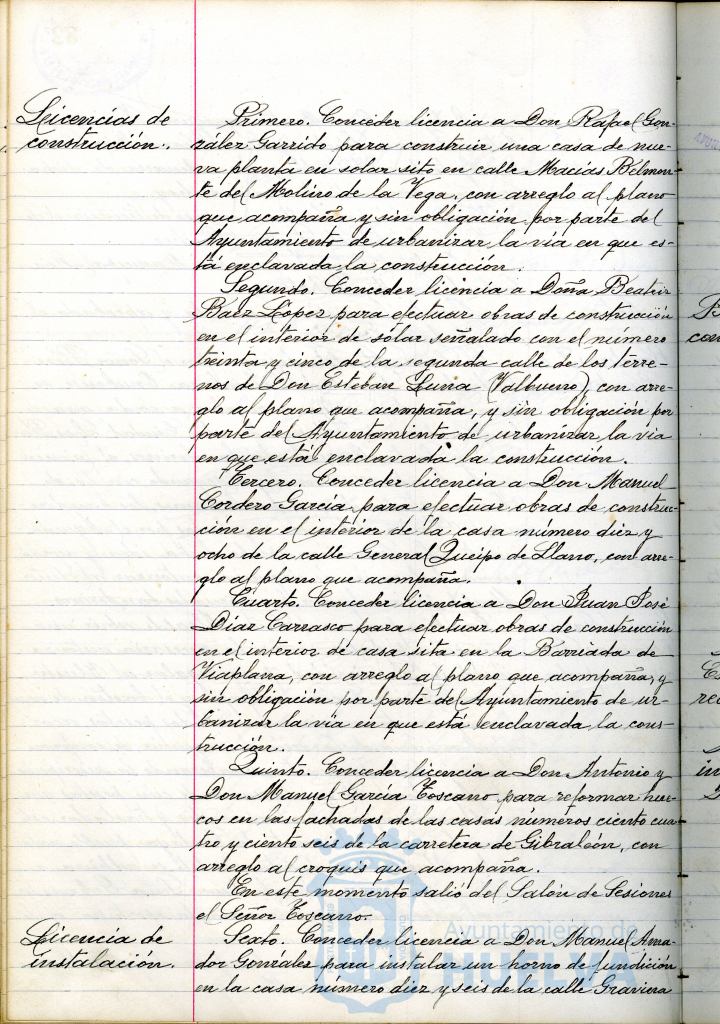 Licencias de
construcción.
Primero. Conceder licencia a Don Rafael Gon-
zález Garrido para construir una casa de nue-
va planta en solar sito en calle Macías Belmon-
te del Molino de la Vega, con arreglo al plano
que acompaña y sin obligación por parte del
Ayuntamiento de urbanizar la vía en que es-
tá enclavada la construcción.
Segundo. Conceder licencia a Doña Beatriz
Baez López para efectuar obras de construcción
en el interior de solar señalado con el número
treinta y cinco de la segunda calle de los terre-
nos de Don Esteban Luna (Valbueno), con arre-
glo al plano que acompaña, y sin obligación por
parte del Ayuntamiento de urbanizar la vía
en que está enclavada la construcción.
Tercero. Conceder licencia a Don Manuel
Cordero García para efectuar obras de construc-
ción en el interior de la casa número diez y
ocho de la calle General Queipo de Llano, con arre-
glo al plano que acompaña.
Cuarto. Conceder licencia a Don Juan José
Díaz Carrasco para efectuar obras de construcción
en el interior de casa sita en la Barriada de
Viaplana, con arreglo al plano que acompaña, y
sin obligación por parte del Ayuntamiento de ur-
banizar la vía en que está enclavada la cons-
trucción.
Quinto. Conceder licencia a Don Antonio y
Don Manuel García Toscano para reformar hue-
cos en las fachadas de las casas números ciento cua-
tro y ciento seis de la carretera de Gibraleón, con
arreglo al croquis que acompaña.
En este momento salió del Salón de Sesiones
el Señor Toscano.
Licencia de
instalación.
Sexto. Conceder licencia a Don Manuel Ama-
dor González para instalar un horno de fundición
en la casa número diez y seis de la calle Graviera
Ayuntamiento de
HUELVA